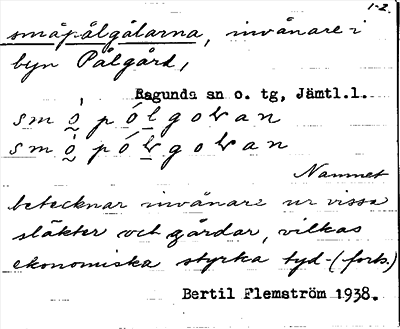 1-2.
småpålgålarna, invånare i
byn Pålgård,
Ragunda sn o. tg, Jämtl.l.
s m o̱ p ó l g o v a n
s m o̱ p ó l g o v a n
Namnet
betecknar invånare ur vissa
släkter och gårdar, vilkas
ekonomiska styrka tyd-(forts.)
Bertil Flemström 1938.